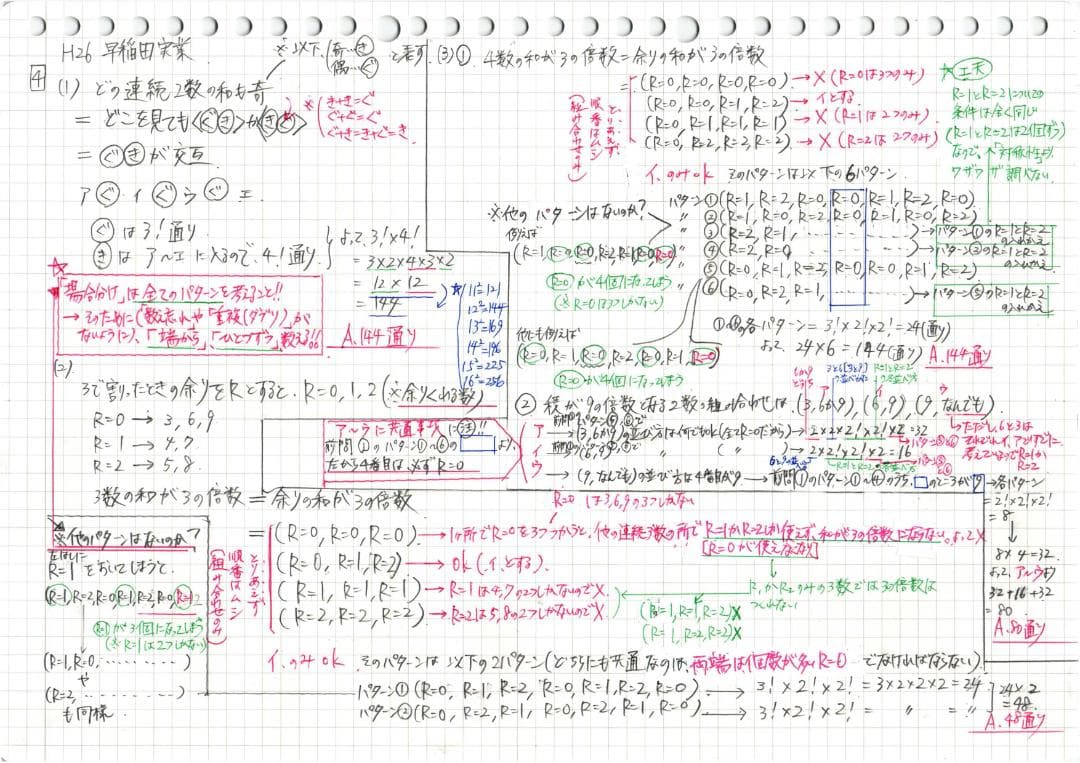 H26 早稲田実業
※以下、(奇…き 偶…ぐ) と表す.
4
(1) どの連続2数の和も奇
= どこを見ても<ぐき>か<きぐ>
※(き+き=ぐ
ぐ+ぐ=ぐ
ぐ+き=き+ぐ=き
= ぐきが交互
ア ぐ イ ぐ ウ ぐ エ
ぐは3!通り
きはア〜エに入るので、4!通り
よって、3!×4!
= 3×2×4×3×2
= 12×12
= 144
A.144通り
★ 11²=121
12²=144
13²=169
14²=196
15²=225
16²=256
★「場合分け」は全てのパターンを考えること!!
→そのために「数え忘れや「重複(ダブリ)」が
ないように、「端から」「ひとつずつ」数える!!
(2)
3で割ったときの余りをRとすると、R=0, 1, 2 (※余り<われる数)
R=0 → 3, 6, 9
R=1 → 4, 7,
R=2 → 5, 8
3数の和が3の倍数 = 余りの和が3の倍数
とりあえず
順番はムシ
(組み合わせのみ)
= (R=0, R=0, R=0) → 1ヶ所でR=0を3つつかうと、他の連続3数の所でR=1かR=2しか使えず、和が3の倍数にならない。よって×
[R=0が使えなくなる]
(R=0, R=1, R=2) → ok (イとする)
(R=1, R=1, R=1) → R=1は4,7の2つしかないので×
(R=2, R=2, R=2) → R=2は5,8の2つしかないので×
R₁かR₂のみの3数では3の倍数は
つくれない
(R=1, R=1, R=2)×
(R=1, R=2, R=2)×
※他のパターンはないのか?
左はしに
R=1をおいてしまうと、
(R=1, R=2, R=0, R=1, R=2, R=0, R=1)
R=1が3個になってしまう
(※R=1は2つしかない)
(R=1, R=0, ………)
や
(R=2, ………)
も同様.
イ.のみok そのパターンは以下の2パターン(どちらにも共通なのは、両端は個数が多いR=0でなければならない)
パターン①(R=0, R=1, R=2, R=0, R=1, R=2, R=0) → 3!×2!×2! = 3×2×2×2 = 24
パターン②(R=0, R=2, R=1, R=0, R=2, R=1, R=0) → 3!×2!×2! = 〃 = 〃
24×2
=48.
A.48通り
(3)① 4数の和が3の倍数=余りの和が3の倍数
とりあえず、
順番はムシ
(組み合わせのみ)
= (R=0, R=0, R=0, R=0) → × (R=0は3つのみ)
(R=0, R=0, R=1, R=2) → イとする
(R=0, R=1, R=1, R=1) → × (R=1は2つのみ)
(R=0, R=2, R=2, R=2) → × (R=2は2つのみ)
イ.のみok そのパターンは以下の6パターン
★工夫
R=1とR=2についての
条件は全く同じ
(R=1とR=2は2個ずつ)
なので、「対称性」より、
ワザワザ調べない
パターン①(R=1, R=2, R=0, R=0, R=1, R=2, R=0)
〃 ②(R=1, R=0, R=2, R=0, R=1, R=0, R=2)
〃 ③(R=2, R=1, ………) → パターン①のR=1とR=2の入れかえ
〃 ④(R=2, R=0, ………) → パターン②のR=1とR=2の入れかえ
〃 ⑤(R=0, R=1, R=2, R=0, R=0, R=1, R=2)
〃 ⑥(R=0, R=2, R=1, ………) → パターン⑤のR=1とR=2の入れかえ
①〜⑥の各パターン=3!×2!×2!=24(通り)
よって、24×6=144(通り)
A.144通り
※他のパターンはないのか?
例えば
(R=1, R=0, R=0, R=2, R=1, R=0, R=0)
R=0が4個になってしまう
(※R=0は3つしかない)
他にも例えば
(R=0, R=1, R=0, R=2, R=0, R=1, R=0)
R=0が4個になってしまう
② 積が9の倍数となる2数の組み合わせは、(3, 6か9), (6, 9), (9, なんでも)
ア〜ウに共通事項に注!!
前問①のパターン①〜⑥の□より、
だから4番目は必ずR=0
R=0は3,6,9の3つしかない
2×2×2!×2!×2=32
2×2!×2!×2=16
(9, なんでも)の並び方は4番目が9 → 前問①のパターン①〜④のうち、□のところが9
→各パターン
=2!×2!×2!
=8
8×4=32
よって、ア〜ウより
32+16+32
=80
A.80通り